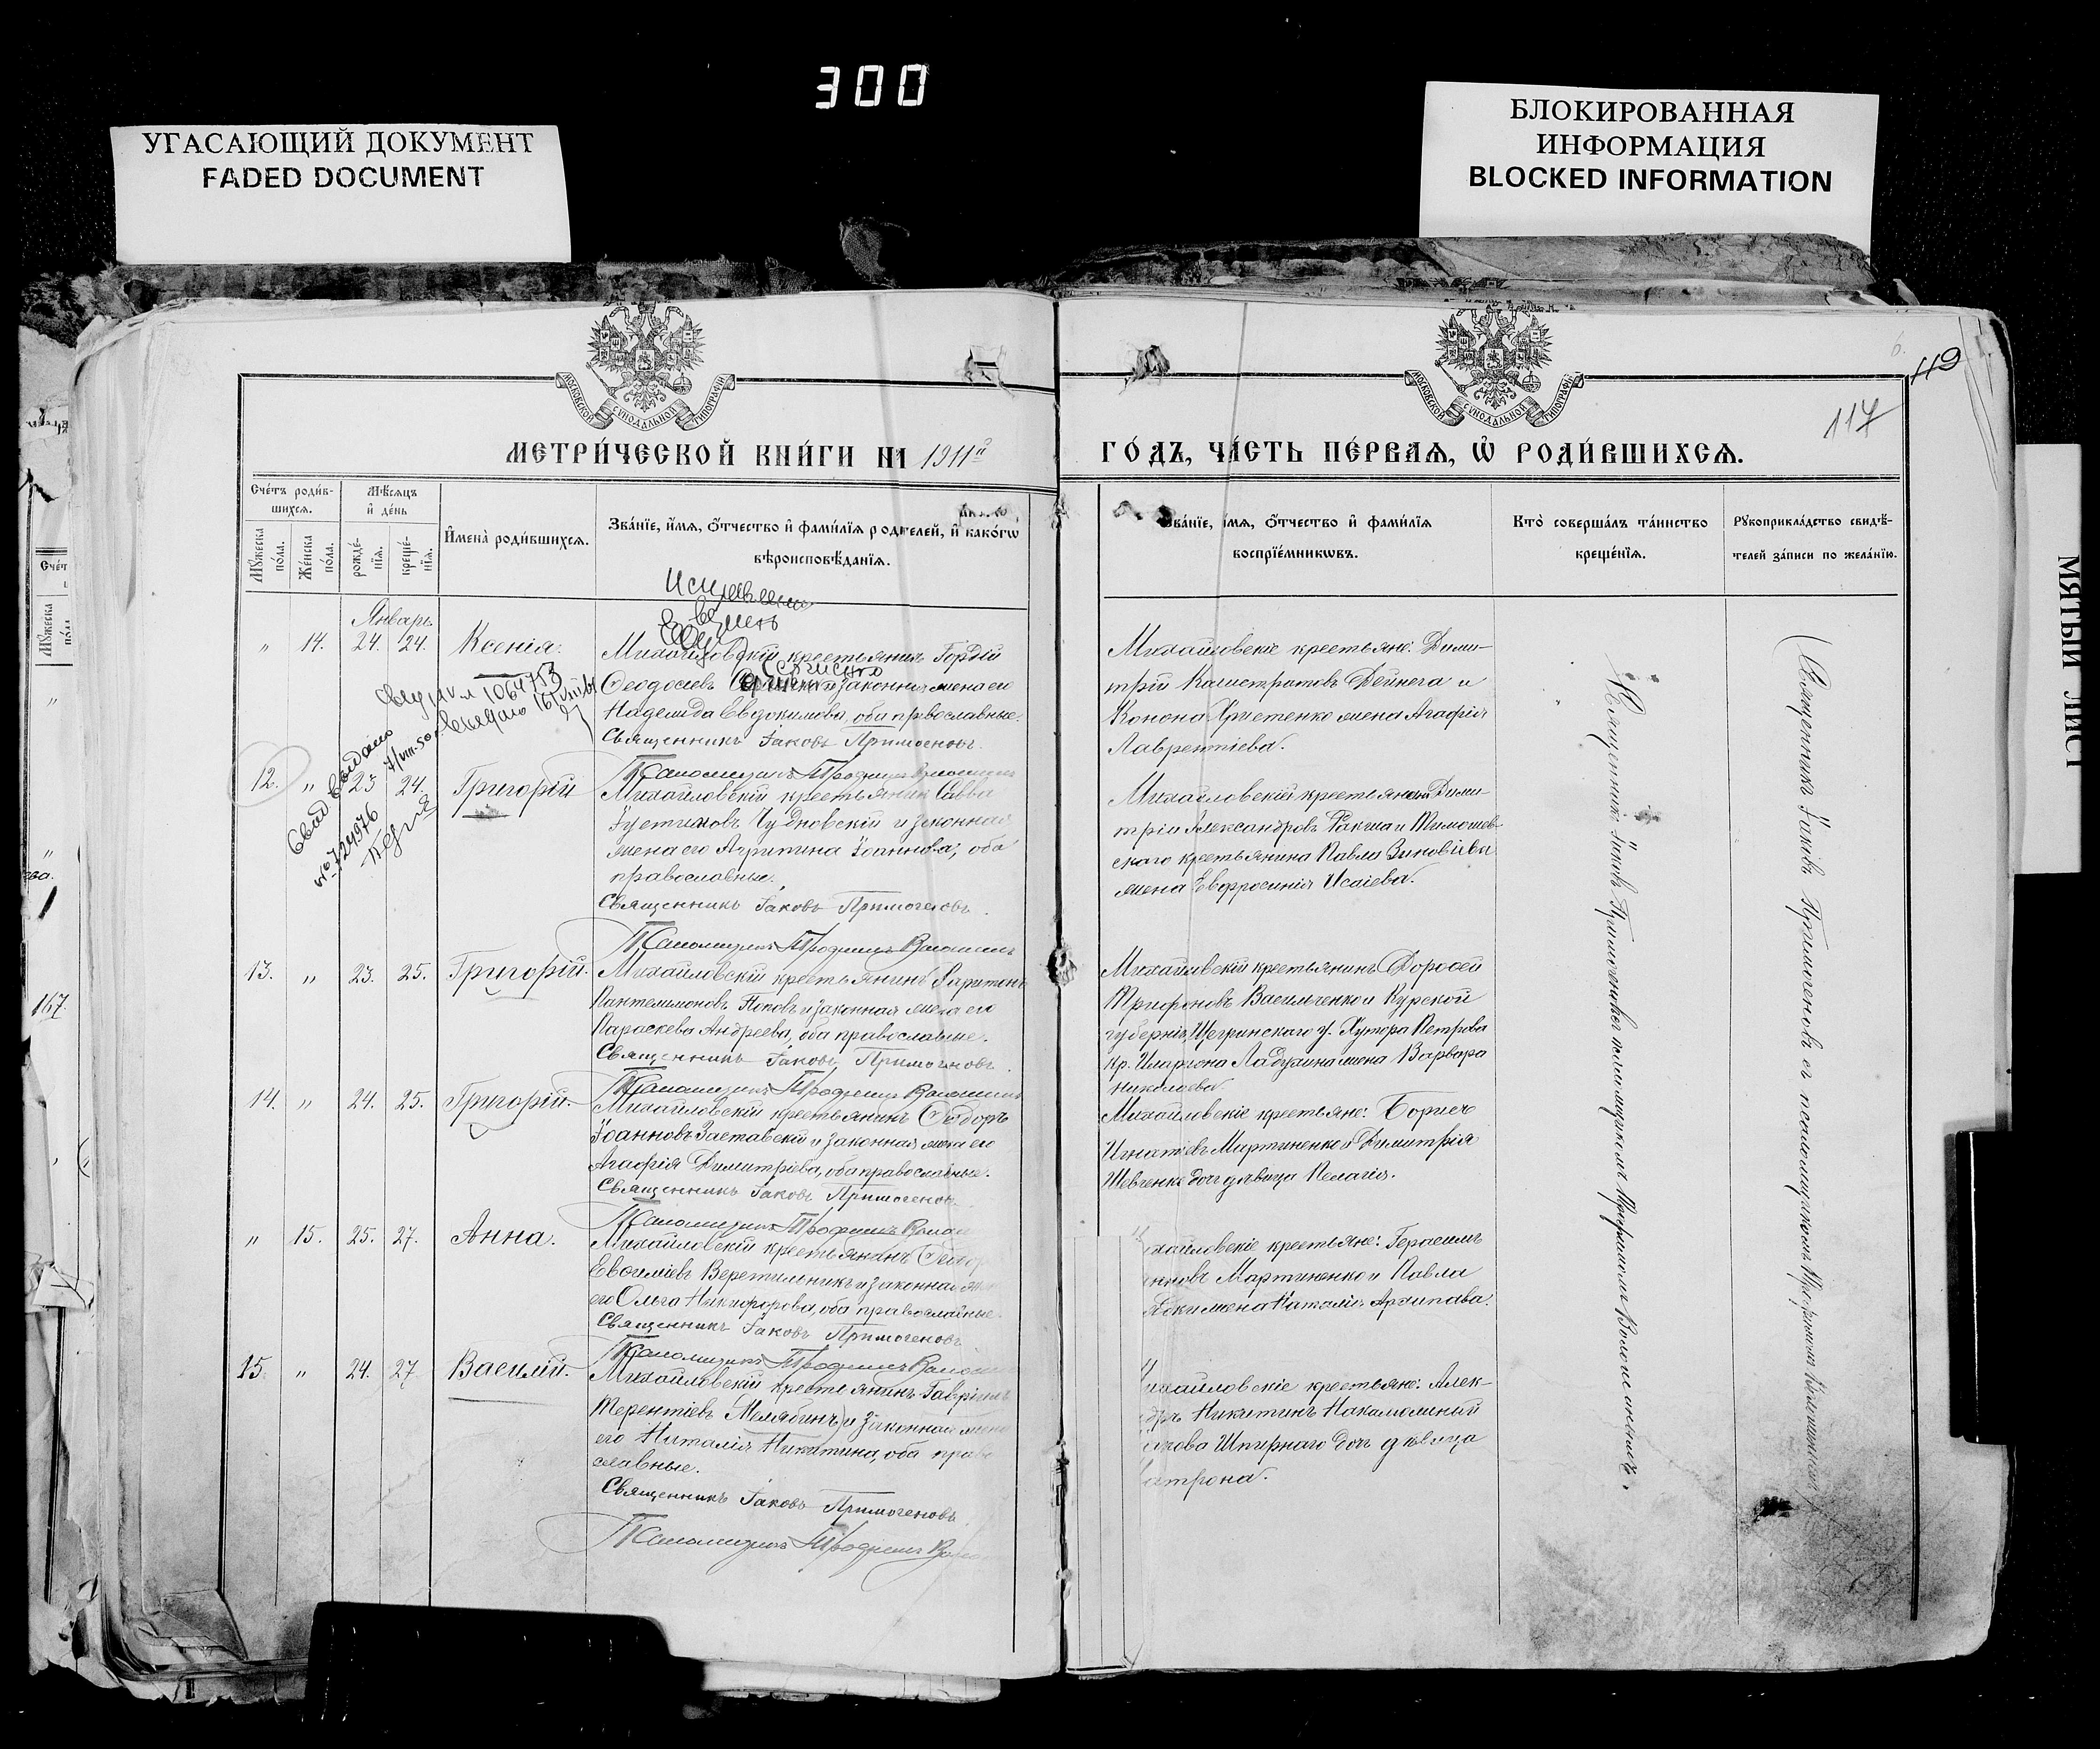 300
УГАСАЮЩИЙ ДОКУМЕНТ
FADED DOCUMENT
БЛОКИРОВАННАЯ
ИНФОРМАЦИЯ
BLOCKED INFORMATION
МОСКОВСКОЙ СѴНОДАЛЬНОЙ ТИПОГРАФІИ
МОСКОВСКОЙ СѴНОДАЛЬНОЙ ТИПОГРАФІИ
119
117
МЕТРИ́ЧЕСКОЙ КНИ́ГИ НА 1911й
ГО́ДЪ, ЧА́СТЬ ПЕ́РВАѦ, Ѡ҆ РОДИ́ВШИХСѦ.
Сче́тъ роди́в-
шихсѧ.
Мꙋ́жеска по́ла.
Же́нска по́ла.
Мѣ́сѧцъ
и҆ де́нь
рожде́-
нїѧ.
креще́-
нїѧ.
И҆мена̀ роди́вшихсѧ.
Зва́нїе, и҆́мѧ, ѻ҆́тчество и҆ фами́лїѧ роди́телей, и҆ како́гѡ
вѣроисповѣ́данїѧ.
Зва́нїе, и҆́мѧ, ѻ҆́тчество и҆ фами́лїѧ
воспрїе́мникѡвъ.
Кто̀ соверша́лъ та́инство
креще́нїѧ.
Рꙋкоприкла́дство свидѣ́-
телей за́писи по жела́нїю.
Январь
" 14. 24. 24. Ксенія.
Михайловскій крестьянинъ Гордій
Ѳеодосіевъ и законная жена его
Надежда Евдокимова, оба православные.
Священникъ Іаковъ Примогеновъ.
Михайловскіе крестьяне: Дими-
трій Калистратовъ Дейнега и
Конона Христенко жена Агафія
Лаврентіева.
1064753
№ 724976
12. " 23 24. Григорій
Псаломщикъ Трофимъ Волошинъ
Михайловскій крестьянинъ Савва
Іустиновъ Чудновскій и законная
жена его Агрипина Іоаннова, оба
православные.
Священникъ Іаковъ Примогеновъ.
Михайловскій крестьянинъ Дими-
трій Александровъ Ракша и Тимошев-
скаго крестьянина Павла Зиновіева
жена Евфросинія Исаіева.
13. " 23. 25. Григорій.
Псаломщикъ Трофимъ Волошинъ
Михайловскій крестьянинъ Харитонъ
Пантелимоновъ Поповъ и законная жена его
Параскева Андреева, оба православные.
Священникъ Іаковъ Примогеновъ
Михайловскій крестьянинъ Дорофей
Трифоновъ Васильченко и Курской
губерніи, Щегринскаго у. Хутора Петрова
кр. Ладухина жена Варвара
Николаева.
14. " 24. 25. Григорій.
Псаломщикъ Трофимъ Волошинъ
Михайловскій крестьянинъ Ѳеодоръ
Іоанновъ Заставскій и законная жена его
Агафія Димитріева, оба православные.
Священникъ Іаковъ Примогеновъ
Михайловскіе крестьяне: Борисъ
Игнатіевъ Мартиненко и Димитрія
Шевченко дочь дѣвица Пелагія.
" 15. 25. 27. Анна.
Псаломщикъ Трофимъ
Михайловскій крестьянинъ
Евѳиміевъ Веретильникъ и законная
его Ольга Никифорова, оба православные.
Священникъ Іаковъ Примогеновъ
хайловскіе крестьяне: Герасимъ
Мартиненко и Павла
жена Наталія Архипова.
15. " 24. 27. Василій.
Псаломщикъ Трофимъ
Михайловскій крестьянинъ Гавріилъ
Терентіевъ Желябинъ и законная жена
его Наталія Никитина, оба право
славные.
Священникъ Іаковъ Примогеновъ.
Псаломщикъ Трофимъ
ихайловскіе крестьяне: Алек-
дръ Никитинъ Накаложный
акова Шпирнаго дочь дѣвица
атрона.
Священникъ Іаковъ Примогеновъ съ псаломщикомъ Трофимомъ Волошинымъ.
Священникъ Іаковъ Примогеновъ съ псаломщикомъ Трофимомъ Волошинымъ
167.
МЯТЫЙ ЛИСТ